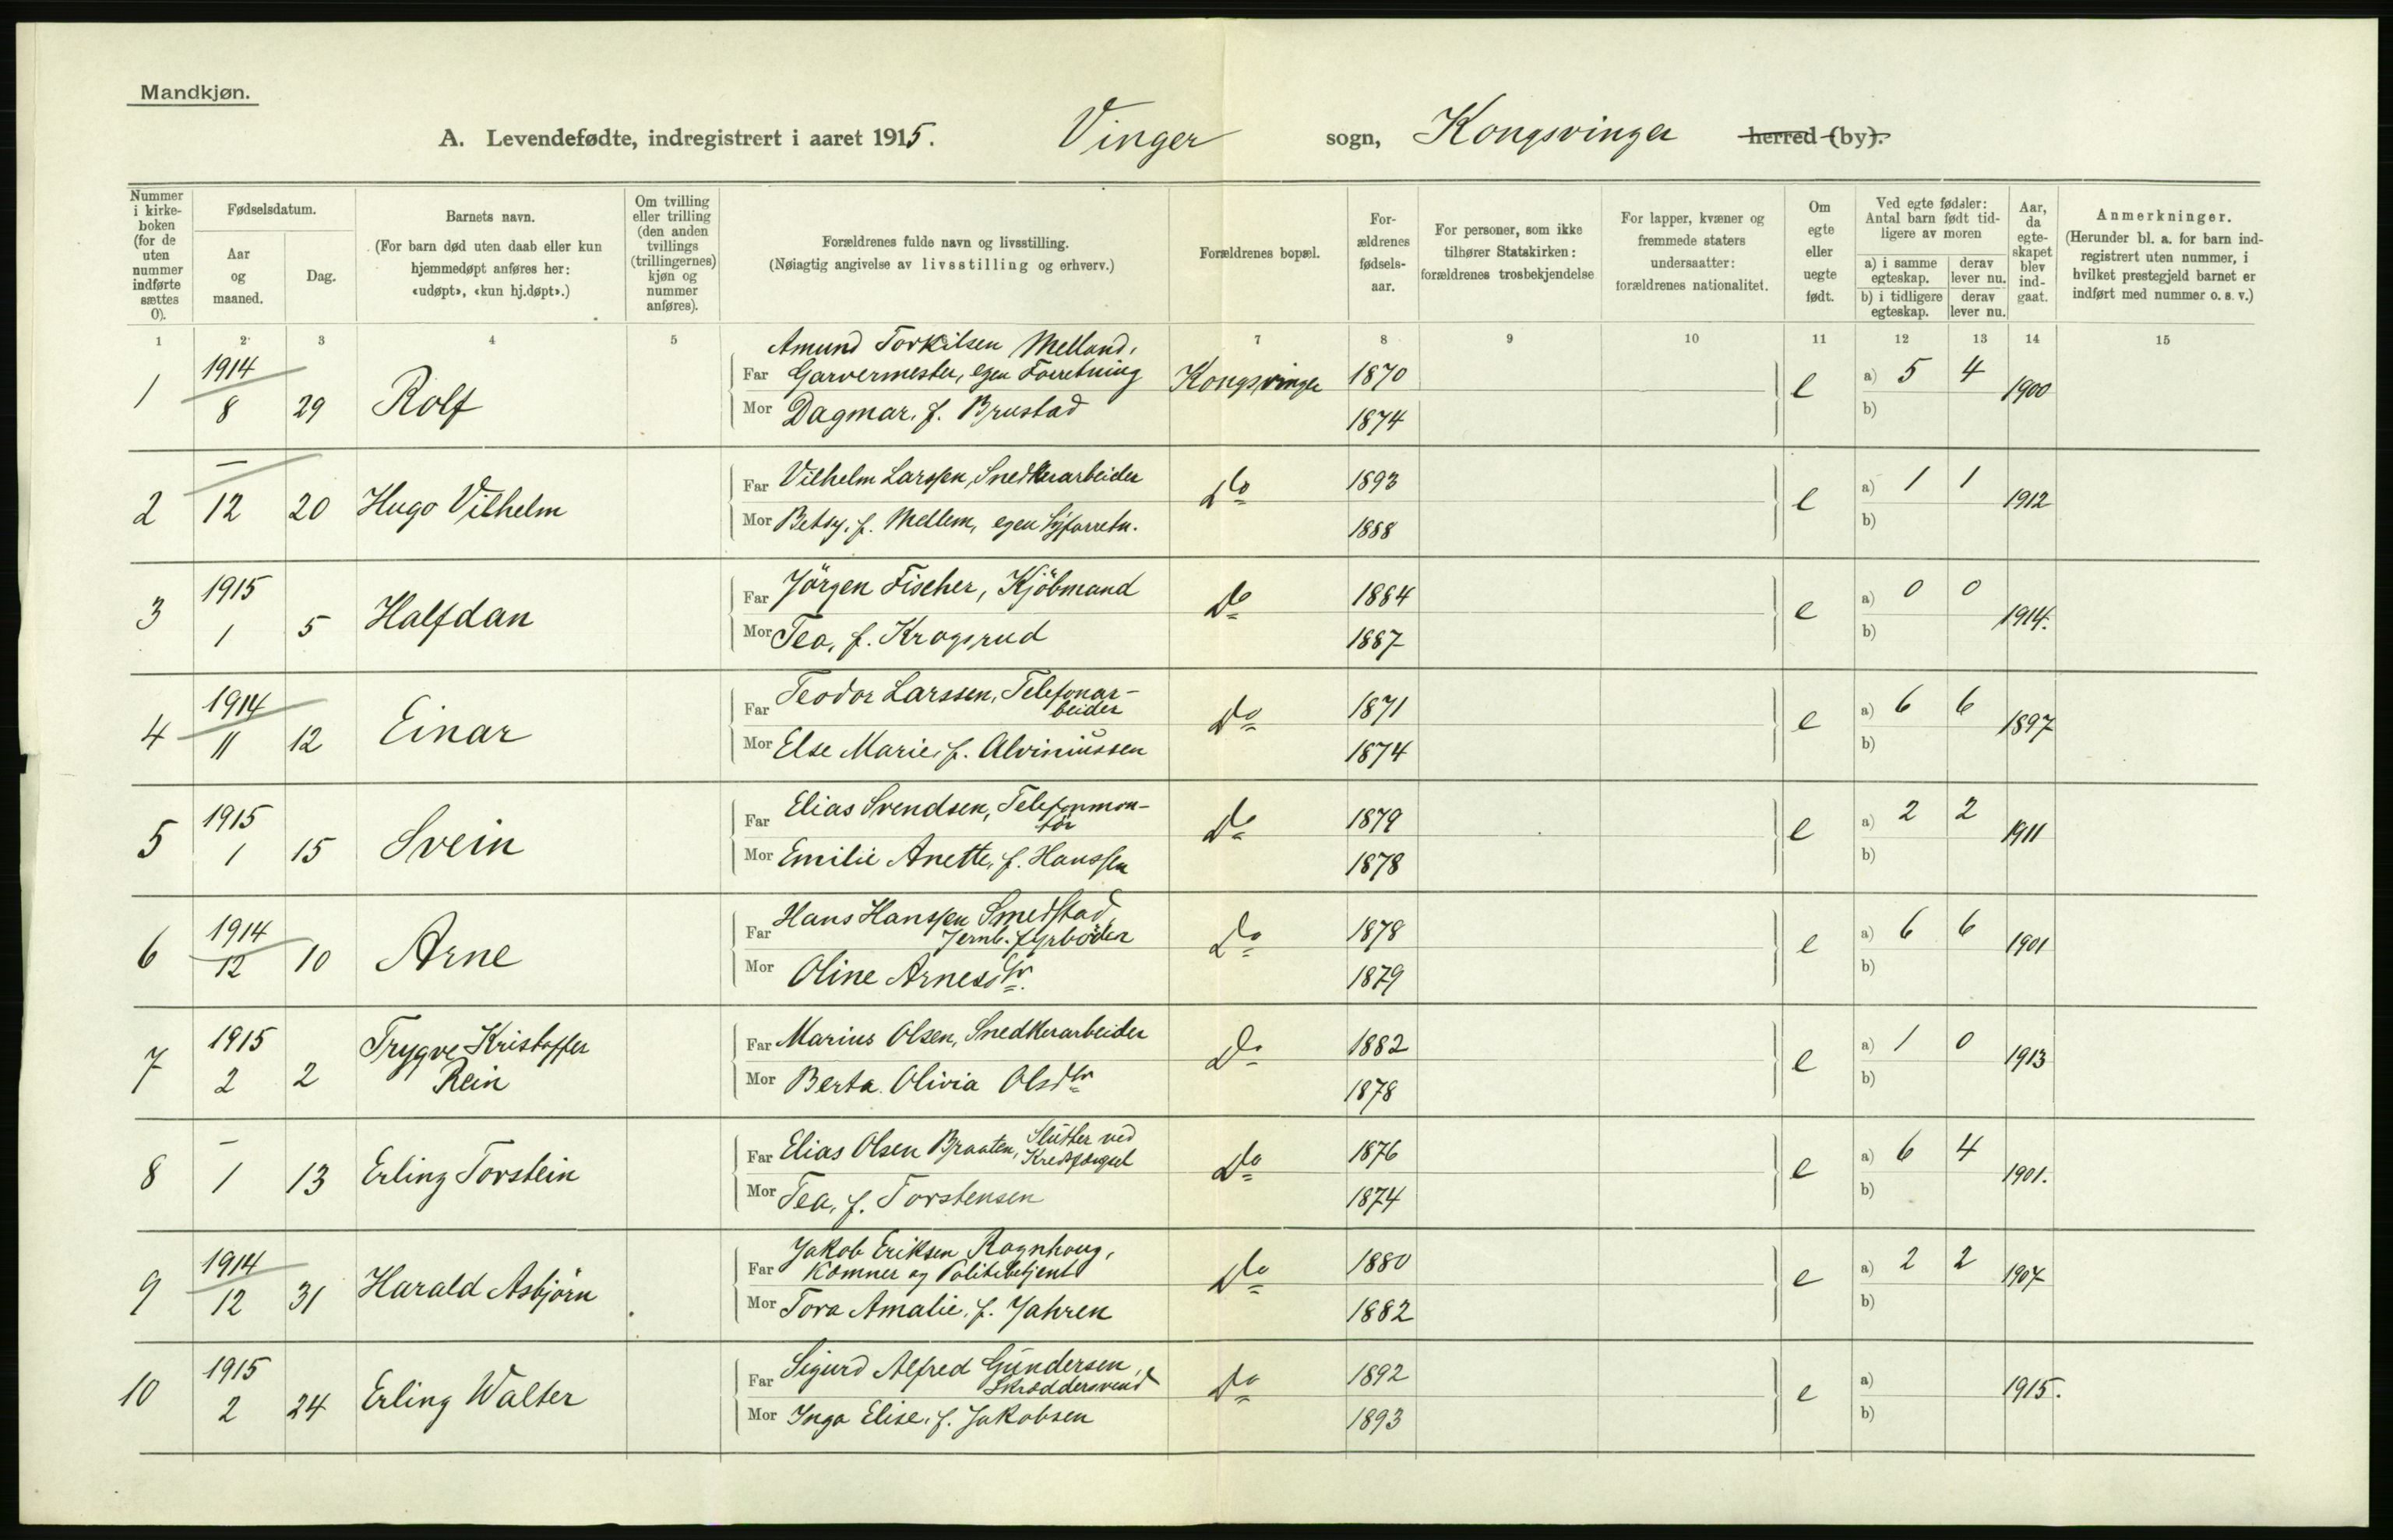 Mandkjøn.
A. Levendefødte, indregistrert i aaret 1915. Vinger sogn, Kongsvinger herred (by).
Nummer i kirkeboken (for de uten nummer indførte sættes 0).
Fødselsdatum.
Aar og maaned.
Dag.
Barnets navn.
(For barn død uten daab eller kun hjemmedøpt anføres her: «udøpt», «kun hj.døpt».)
Om tvilling eller trilling (den anden tvillings (trillingernes) kjøn og nummer anføres).
Forældrenes fulde navn og livsstilling.
(Nøiagtig angivelse av livsstilling og erhverv.)
Forældrenes bopæl.
For-ældrenes fødsels-aar.
For personer, som ikke tilhører Statskirken: forældrenes trosbekjendelse
For lapper, kvæner og fremmede staters undersaatter: forældrenes nationalitet.
Om egte eller uegte født.
Ved egte fødsler: Antal barn født tid-ligere av moren
a) i samme egteskap. derav lever nu.
b) i tidligere egteskap. derav lever nu.
Aar, da egte-skapet blev ind-gaat.
Anmerkninger.
(Herunder bl. a. for barn ind-registrert uten nummer, i hvilket prestegjeld barnet er indført med nummer o. s. v.)
1 2 3 4 5 7 8 9 10 11 12 13 14 15
Amund Torkilsen Melland,
1 1914 8 29 Rolf Far Garvermester, egen Forretning Kongsvinger 1870 e a) 5 4 1900
Mor Dagmar, f. Brustad 1874 b)
2 — 12 20 Hugo Vilhelm Far Vilhelm Larssen, Snedkerarbeider Do 1893 e a) 1 1 1912
Mor Betsy, f. Mellem, egen Syforretn. 1888 b)
3 1915 1 5 Halfdan Far Jörgen Fischer, Kjöbmand Do 1884 e a) 0 0 1914.
Mor Tea, f. Kragsrud 1887 b)
4 1914 11 12 Einar Far Teodor Larssen, Telefonar-
beider Do 1871 e a) 6 6 1897
Mor Else Marie, f. Alviniussen 1874 b)
5 1915 1 15 Svein Far Elias Svendsen, Telefonmon-
tör Do 1879 e a) 2 2 1911
Mor Emilie Anette, f. Hanssen 1878 b)
6 1914 12 10 Arne Far Hans Hanssen Smedstad,
Jernb. fyrböder Do 1878 e a) 6 6 1901
Mor Oline Arnesdtr. 1879 b)
7 1915 2 2 Trygve Kristoffer
Rein Far Marius Olsen, Snedkerarbeider Do 1882 e a) 1 0 1913
Mor Berta Olivia Olsdtr 1878 b)
8 — 1 13 Erling Torstein Far Elias Olsen Braaten, Slutter ved
Kredsfængsel Do 1876 e a) 6 4 1901.
Mor Tea, f. Torstensen 1874 b)
Jakob Eriksen Ragnhaug,
9 1914 12 31 Harald Asbjörn Far Kæmner og Politibetjent Do 1880 e a) 2 2 1907
Mor Tora Amalie, f. Jahren 1882 b)
10 1915 2 24 Erling Walter Far Sigurd Alfred Gundersen,
Skræddersvend Do 1892 e a) 1915.
Mor Inga Elise, f. Jakobsen 1893 b)